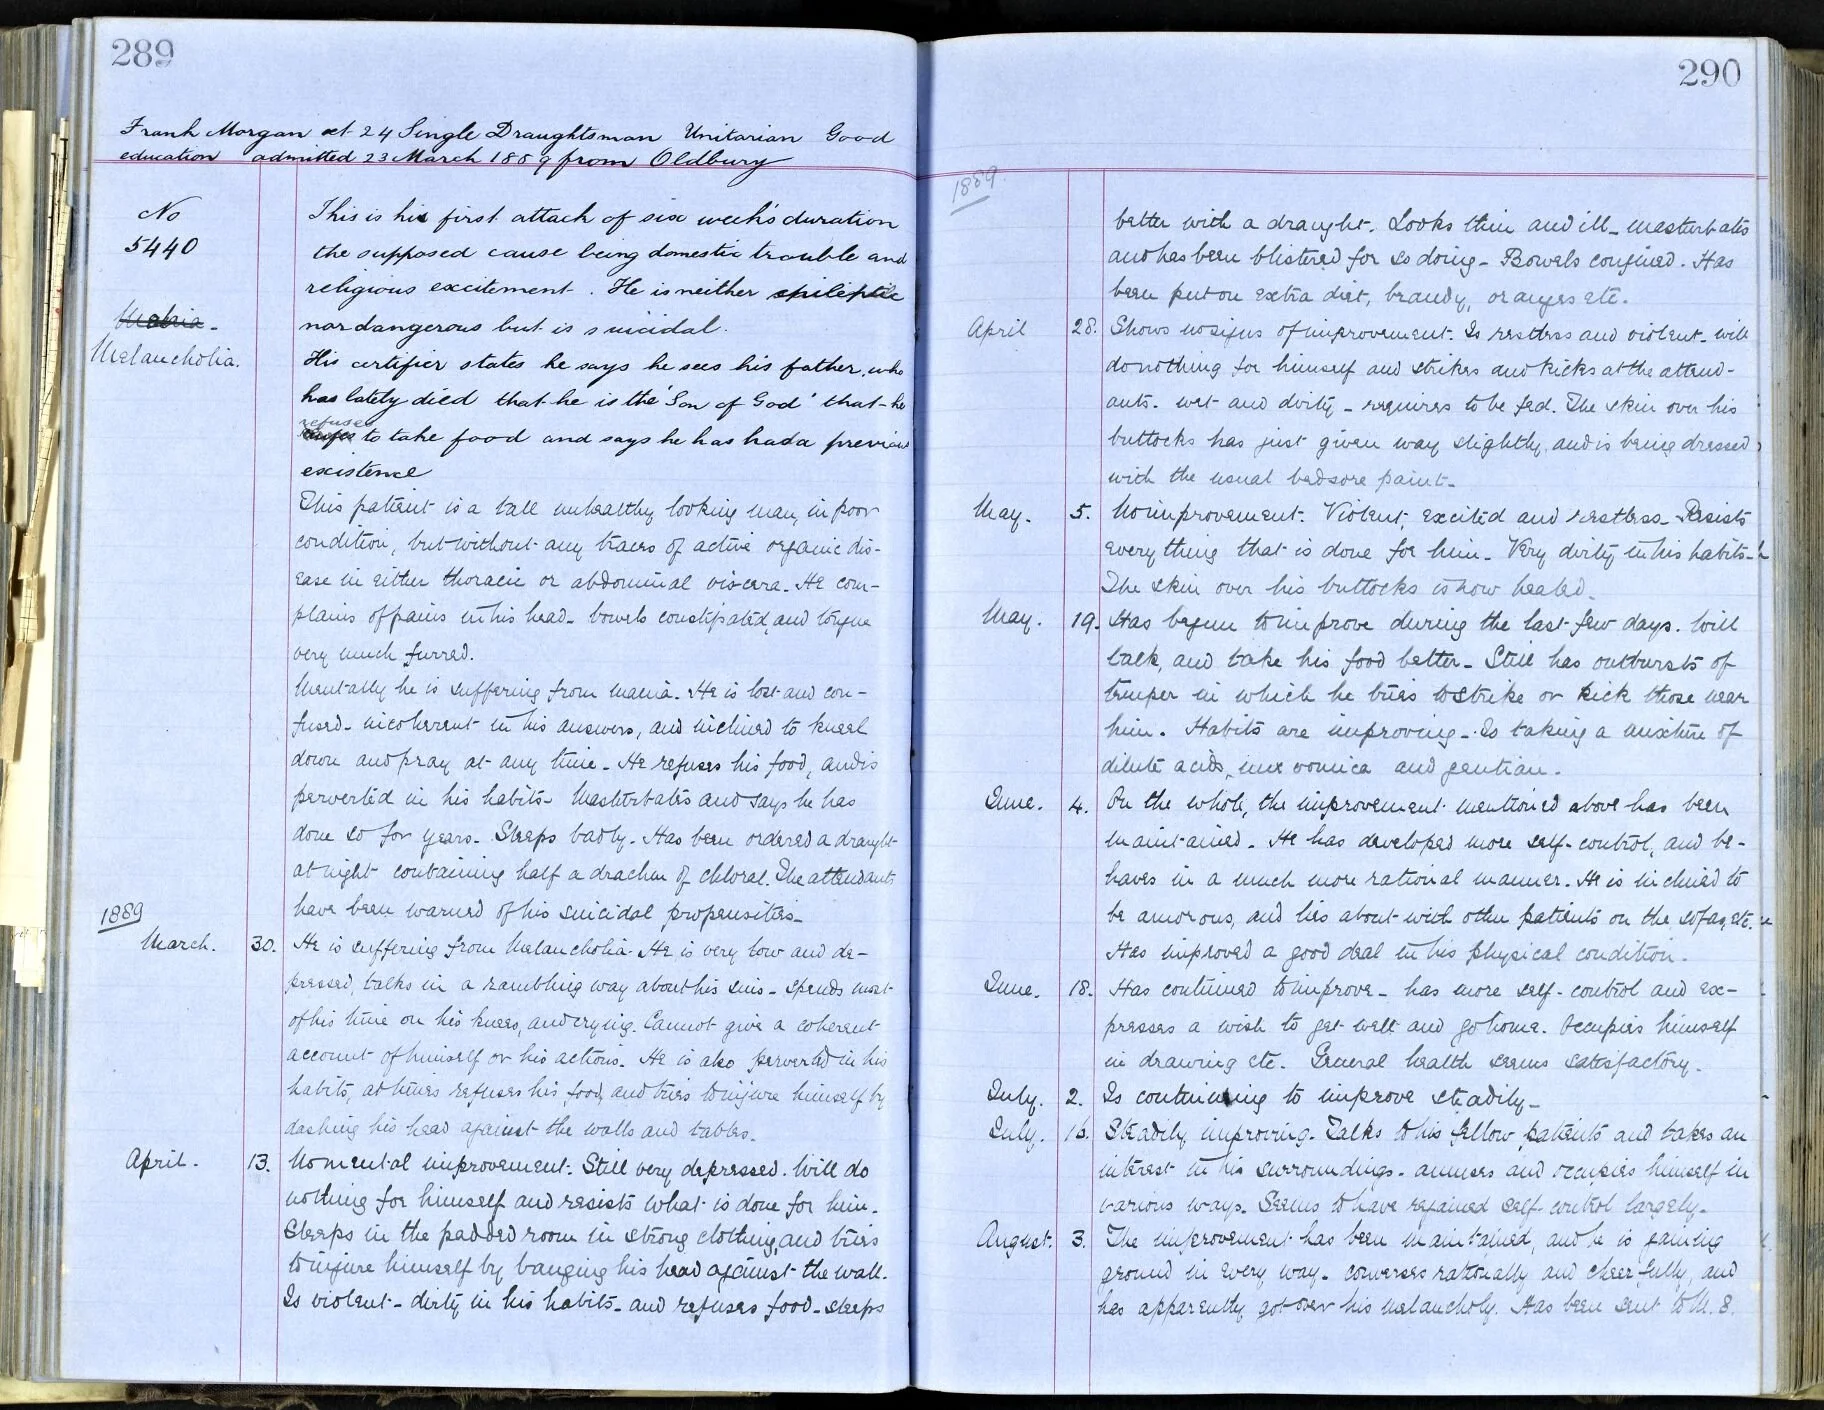 289
Frank Morgan æt 24 Single Draughtsman Unitarian Good
education admitted 23 March 1889 from Oldbury
No
5440
Mania -
Melancholia.
This is his first attack of six week's duration
the supposed cause being domestic trouble and
religious excitement. He is neither epileptic
nor dangerous but is suicidal.
His certifier states he says he sees his father, who
has lately died that he is the 'Son of God' that he
refuses
to take food and says he has had a previous
existence
This patient is a tall unhealthy looking man, in poor
condition, but without any traces of active organic dis-
ease in either thoracic or abdominal viscera. He com-
plains of pains in his head - bowels constipated, and tongue
very much furred.
Mentally he is suffering from mania. He is lost and con-
fused - incoherent in his answers, and inclined to kneel
down and pray at any time - He refuses his food, and is
perverted in his habits - Masturbates and says he has
done so for years - Sleeps badly - Has been ordered a draught
at night containing half a drachm of chloral. The attendants
have been warned of his suicidal propensities -
1889
March. 30. He is suffering from Melancholia. He is very low and de-
pressed, talks in a rambling way about his sins - spends most
of his time on his knees, and crying. Cannot give a coherent
account of himself or his actions. He is also perverted in his
habits, at times refuses his food, and tries to injure himself by
dashing his head against the walls and tables.
April. 13. No mental improvement. Still very depressed. Will do
nothing for himself and resists what is done for him.
Sleeps in the padded room in strong clothing, and tries
to injure himself by banging his head against the wall.
Is violent - dirty in his habits - and refuses food - sleeps
290
1889.
better with a draught. Looks thin and ill - masturbates
and has been blistered for so doing - Bowels confined. Has
been put on extra diet, brandy, oranges etc.
April 28. Shows no signs of improvement. Is restless and violent - will
do nothing for himself and strikes and kicks at the attend-
ants. wet and dirty - requires to be fed. The skin over his
buttocks has just given way slightly, and is being dressed
with the usual bedsore paint -
May. 5. No improvement. Violent, excited and restless - Resists
everything that is done for him - Very dirty in his habits -
The skin over his buttocks is now healed.
May. 19. Has begun to improve during the last few days. Will
talk, and take his food better - Still has outbursts of
temper in which he tries to strike or kick those near
him. Habits are improving - Is taking a mixture of
dilute acids, nux vomica and gentian.
June. 4. On the whole, the improvement mentioned above has been
maintained. He has developed more self-control, and be-
haves in a much more rational manner. He is inclined to
be amorous, and lies about with other patients on the sofas, etc.
Has improved a good deal in his physical condition.
June. 18. Has continued to improve - has more self-control and ex-
presses a wish to get well and go home. Occupies himself
in drawing etc. General health seems satisfactory.
July. 2. Is continuing to improve steadily -
July. 16. Steadily improving. Talks to his fellow patients and takes an
interest in his surroundings - amuses and occupies himself in
various ways. Seems to have regained self-control largely.
August. 3. The improvement has been maintained, and he is gaining
ground in every way - converses rationally and cheerfully, and
has apparently got over his melancholy. Has been sent to M. 8.